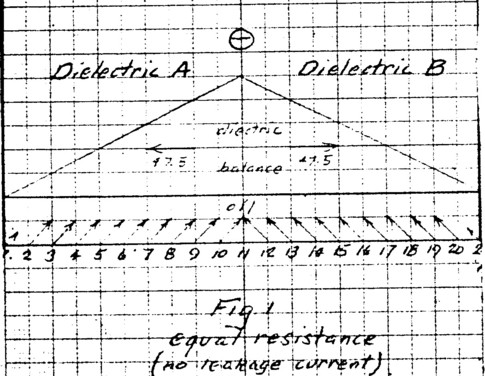 Dielectric A Dielectric B
dielctric
47.5 47.5
balance
oil
1 2 3 4 5 6 7 8 9 10 11 12 13 14 15 16 17 18 19 20 2
Fig 1
equal resistance
(no leakage current)